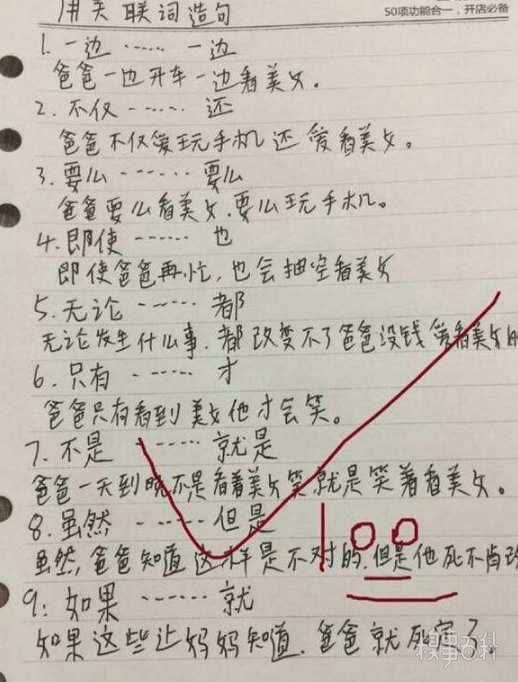 用关联词造句
50项功能合一，开店必备
1.一边……一边
爸爸一边开车一边看美女。
2.不仅……还
爸爸不仅爱玩手机还爱看美女。
3.要么……要么
爸爸要么看美女.要么玩手机。
4.即使……也
即使爸爸再忙,也会抽空看美女
5.无论……都
无论发生什么事.都改变不了爸爸没钱爱看美女的
6.只有……才
爸爸只有看到美女他才会笑。
7.不是……就是
爸爸一天到晚不是看着美女笑就是笑着看美女。
8.虽然……但是
虽然,爸爸知道这样是不对的.但是他死不肯改
9:如果……就
如果这些让妈妈知道.爸爸就死定了。
100
糗事百科